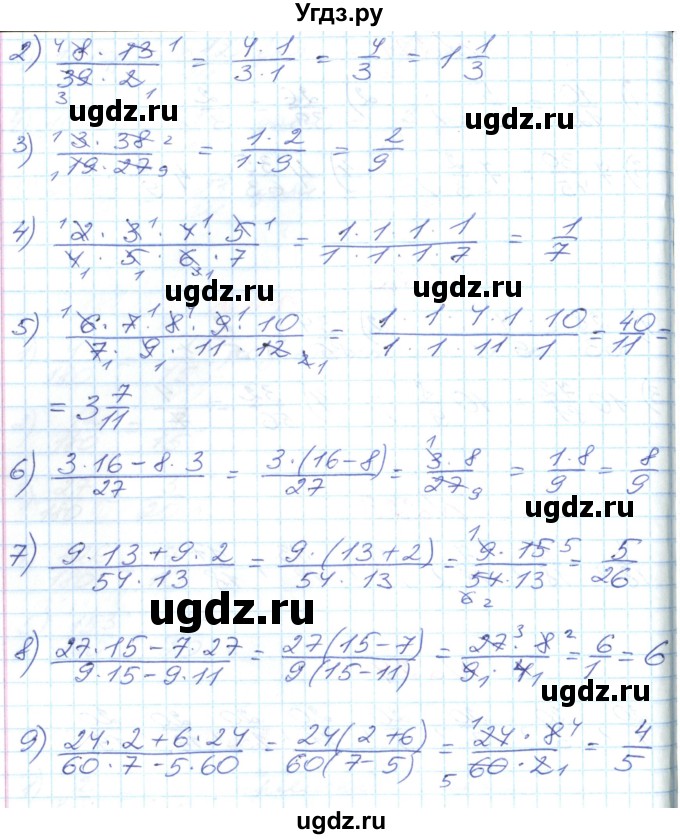 Угдз.ру
2) (8 · 13)/(39 · 2) = (4 · 1)/(3 · 1) = 4/3 = 1 1/3
ugdz.ru
ugdz.ru
3) (3 · 38)/(19 · 27) = (1 · 2)/(1 · 9) = 2/9
4) (2 · 3 · 4 · 5)/(4 · 5 · 6 · 7) = (1 · 1 · 1 · 1)/(1 · 1 · 1 · 7) = 1/7
ugdz.ru
ugdz.ru
5) (6 · 7 · 8 · 9 · 10)/(7 · 9 · 11 · 12) = (1 1 · 4 · 1 10)/(1 · 1 · 11 · 1) = 40/11 =
= 3 7/11
6) (3 · 16 – 8 · 3)/27 = (3 · (16 – 8))/27 = (3 · 8)/27 = (1 · 8)/9 = 8/9
ugdz.ru
7) (9 · 13 + 9 · 2)/(54 · 13) = (9 · (13 + 2))/(54 · 13) = (9 · 15)/(54 · 13) = 5/26
ugdz.ru
8) (27 · 15 – 7 · 27)/(9 · 15 – 9 · 11) = (27(15 – 7))/(9(15 – 11)) = (27 · 8)/(9 · 4) = 6/1 = 6
ugdz.ru
9) (24 · 2 + 6 · 24)/(60 · 7 – 5 · 60) = (24(2 + 6))/(60(7 – 5)) = (24 · 8)/(60 · 2) = 4/5
ugdz.ru